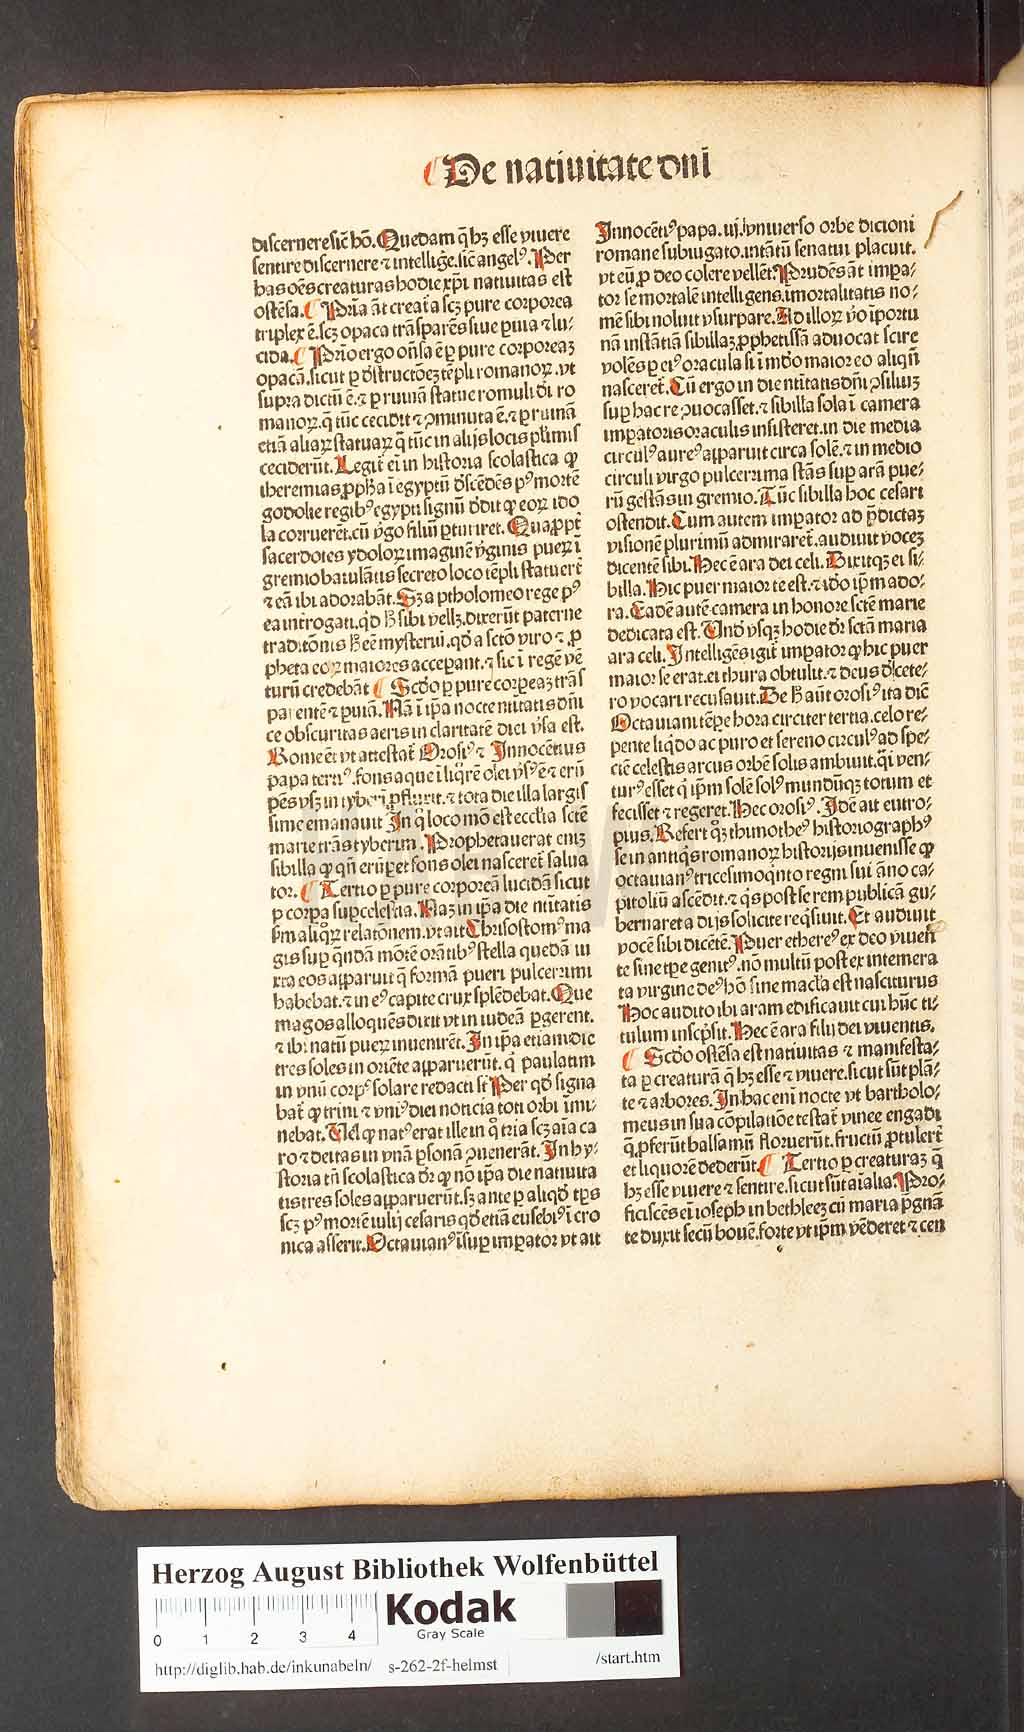 De natiuitate dñi
discernere sic̄ hō. Quedam q̄ hꝫ esse viuere
sentire discernere ⁊ intellig̃e. sic̄ angelꝰ. Per
has oēs creaturas hodie xp̄i natiuitas est
ostēsa. Pria āt creat̄a scꝫ pure corporea
triplex ē. scꝫ opaca trāsparēs siue ꝑuia ⁊ lu⸗
cida. Prīo ergo oñsa ē ꝑ pure corporeaꝫ
opacā. sicut ꝑ dr̃structōeꝫ tēpli romanoꝝ. vt
supra dictū ē. ⁊ ꝑ ruinā statue romuli di ro
manoꝝ. q̄ tūc cecidit ⁊ ↄminuta ē. ⁊ ꝑ ruinā
etiā aliaꝝ statuaꝝ q̄ tūc in alijs locis pl̄imis
ceciderūt. Legit̃ em̄ in historia scolastica ꝙ
iheremias ꝓpħa ī egyptū dr̃scēdēs pꝰ mortē
godolie regibꝰ egypti signū dr̃dit ꝙ eoꝝ ido
la corruerēt. cū v̄go filiū ꝑturiret. Quaꝓpt̃
sacerdotes ydoloꝝ imaginē v̄ginis pueꝝ ī
gremio baiulātis secreto loco tēpli statuerūt
⁊ eā ibi adorabāt. Sꝫ a ptholomeo rege pꝰ
ea introgati. qd̄ ħ sibi vellꝫ. dixerūt paterne
traditōnis ħ eē mysteriū. qd̄ a sct̄o viro ⁊ ꝓ
pheta eoꝝ maiores accepant. ⁊ sic ī regē vē
turū credebāt Scd̄o ꝑ pure corpeaꝫ trās
parentē ⁊ ꝑuiā. Nā ī ip̄a nocte ntītatis dñi
ce obscuritas aeris in claritatē diei v̄sa est.
Rome ēt vt attestat̃ Orosiꝰ ⁊ Innocētius
papa terciꝰ. fons aque ī liq̄rē olei v̄sꝰ ē ⁊ erū
pēs vsꝫ in tyberī ꝓfluxit. ⁊ tota die illa largis
sime emanauit In q̄ loco mō est eccl̄ia scte
marie trās tyberim. Prophetauerat eniꝫ
sibilla ꝙ qn̄ erūpet fons olei nasceret̃ salua
tor. Tertio ꝑ pure corporeā lucidā sicut
ꝑ corpa suꝑcelestia. Naꝫ in ip̄a die ntītatis
ẜm aliqꝝ relatōnem. vt ait Chrisostomꝰ ma
gis suꝑ qndā mōtē orātibꝰ stella quedā iu
xta eos apparuit q̄ formā pueri pulcerimi
habebat. ⁊ in eꝰ capite crux splēdebat. Que
magos alloquēs dixit vt in iudeā ꝑgerent.
⁊ ibi natū pueꝝ inuenirēt. In ip̄a etiam die
tres soles in oriēte apparuerūt. q̄ paulatim
in vnū corpꝰ solare redacti st̄ Per qd̄ signa
bat̃ ꝙ trini ⁊ vniꝰ dei noticia toti orbi īmi⸗
nebat. Vel̄ ꝙ natꝰ erat ille in q̄ tria scꝫ aīa ca
ro ⁊ deitas in vnā ꝑsonā ↄuenerāt. In hy⸗
storia tn̄ scolastica dr̄ ꝙ nō ip̄a die natiuita
tis tres soles apparuerūt. sꝫ ante ꝑ aliqd̄ tꝑs
scꝫ pꝰ mortē iulij cesaris qd̄ etiā eusebiꝰ ī cro
nica asserit. Octauianꝰ īsuꝑ impator vt ait
Innocētꝰ papa. iij. vniuerso orbe dicioni
romane subiugato. intātū senatui placuit.
vt eū ꝓ deo colere vellēt. Prudēs āt impa⸗
tor se mortalē intelligens. imortalitatis no⸗
mē sibi noluit vsurpare. Ad illoꝝ v̄o īportu
nā instātiā sibillaꝫ ꝓphetissā aduocat scire
volēs ꝑ eiꝰ oracula si ī mūdo maior eo aliqñ
nasceret̃. Cū ergo in die ntītatis dñi ↄsiliuꝫ
suꝑ hac re ↄuocasset. ⁊ sibilla sola ī camera
impatoris oraculis insisteret. in die media
circulꝰ aureꝰ apparuit circa solē. ⁊ in medio
circuli virgo pulcerrima stās suꝑ arā pue⸗
rū gestās in gremio. Tūc sibilla hoc cesari
ostendit. Cum autem impator ad p̄dictaꝫ
visionē plurimū admiraret̃. audiuit voceꝫ
dicentē sibi. Hec ē ara dei celi. Dixitqꝫ ei si⸗
billa. Hic puer maior te est. ⁊ iō ip̄m ado⸗
ra. Eadē autē camera in honore scte marie
dedicata est. Vnd̄ vsqꝫ hodie dr̄ sctā maria
ara celi. Intelligēs igit̃ impator ꝙ hic puer
maior se erat. ei thura obtulit. ⁊ deus d̄ cete⸗
ro vocari recusauit. De ħ aūt orosiꝰ ita dic̄
Octauiani tēpe hora circiter tertia. celo re⸗
pente liqdo ac puro et sereno circulꝰ ad spe⸗
ciē celestis arcus orbē solis ambiuit. q̄i ven⸗
turꝰ esset q̄ ip̄m solē solꝰ mundūqꝫ totum et
fecisset ⁊ regeret. Hec orosiꝰ. Idē ait eutro⸗
pius. Refert qꝫ thimotheꝰ historiographꝰ
se in antiqs romanoꝝ historijs inuenisse ꝙ
octauianꝰ tricesimoqnto regni sui āno ca⸗
pitoliū ascēdit. ⁊ qs post se rem publicā gu⸗
bernaret a dijs solicite reqsiuit. Et audiuit
vocē sibi dicētē. Puer ethereꝰ ex deo viuen
te sine tꝑe genitꝰ. nō multū post ex intemera
ta virgine deꝰ hō sine macl̄a est nasciturus
Hoc audito ibi aram edificauit cui hūc ti⸗
tulum inscpsit. Hec ē ara filij dei viuentis.
Scd̄o ostēsa est natiuitas ⁊ manifesta⸗
ta ꝑ creaturā q̄ hꝫ esse ⁊ viuere. sicut sūt plā⸗
te ⁊ arbores. In hac eni nocte vt bartholo⸗
meus in sua cōpilatiōe testat̃ vinee engadi
q̄ ꝓferūt balsamū floruerūt. fructū ꝓtulerūt
et liquorē dederūt. Tertio ꝑ creaturaꝫ q̄
hꝫ esse viuere ⁊ sentire. sicut sūt aīalia. Pro⸗
ficiscēs ei ioseph in bethleeꝫ cū maria p̄gnā
te duxit secū bouē. forte vt ip̄m vēderet ⁊ cen
Herzog August Bibliothek Wolfenbüttel
0 1 2 3 4
Kodak
Gray Scale
http://diglib.hab.de/inkunabeln/ s-262-2f-helmst /start.htm